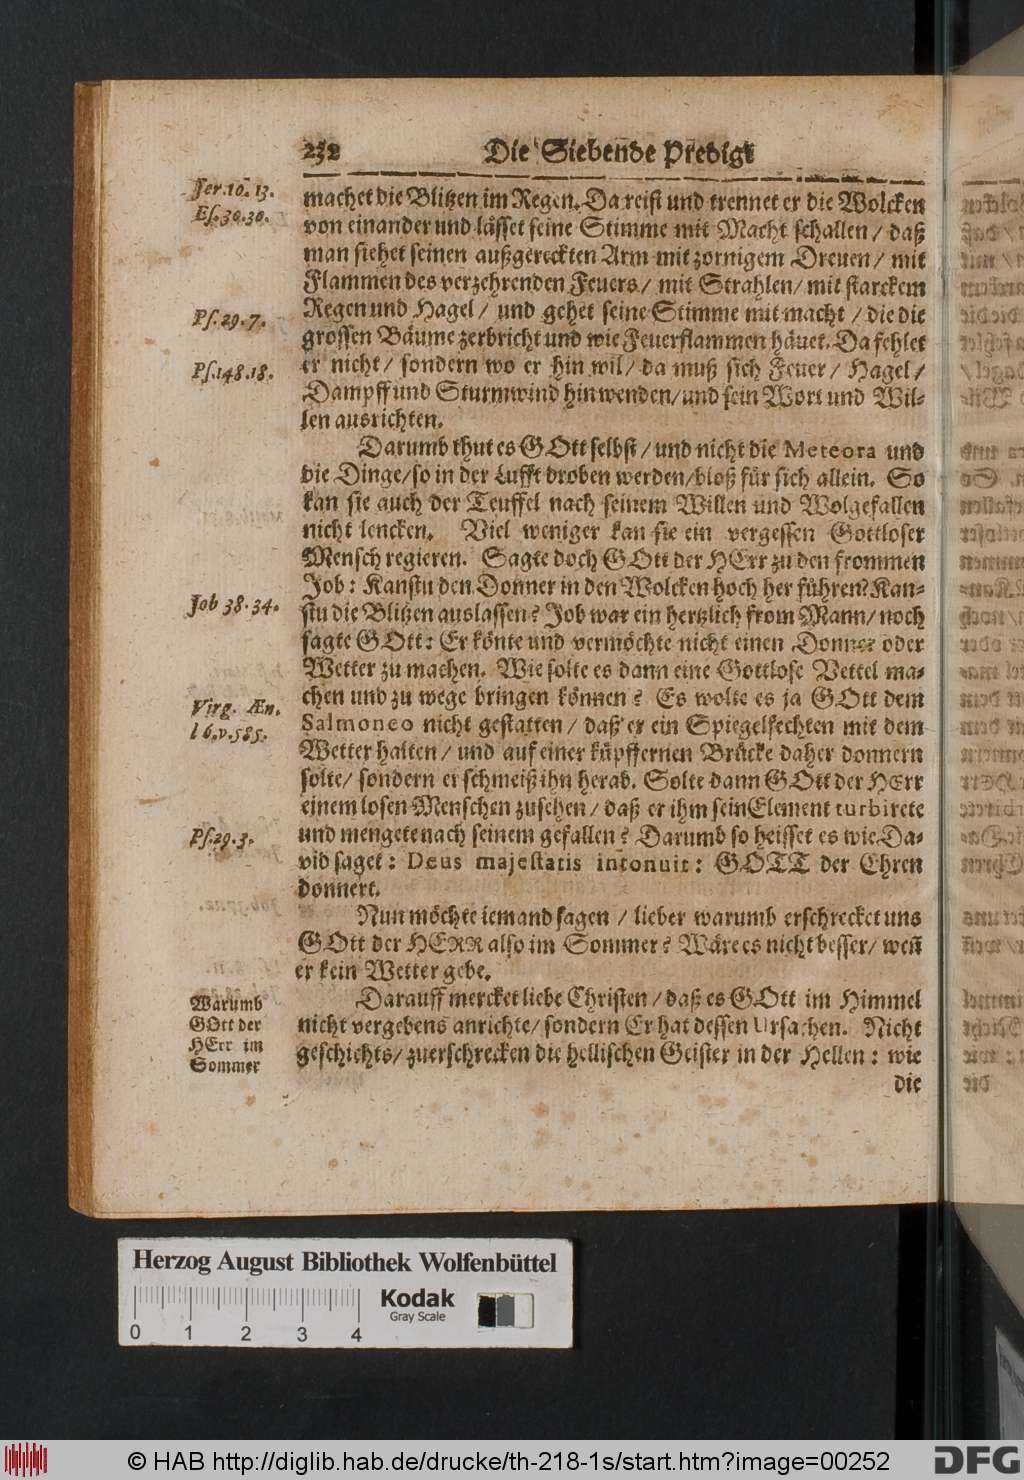 232 Die Siebende Predigt
Jer. 10. 13.
Es. 30. 30.
machet die Blitzen im Regen. Da reist und trennet er die Wolcken
von einander und låsset seine Stimme mit Macht schallen / daß
man siehet seinen außgereckten Arm mit zornigem Dreuen / mit
Flammen des verzehrenden Feuers / mit Strahlen / mit starckem
Ps. 29. 7.
Regen und Hagel / und gehet seine Stimme mit macht / die die
grossen Bäume zerbricht und wie Feuerflammen häuet. Da fehlet
Ps. 148. 18.
er nicht / sondern wo er hin wil / da muß sich Feuer / Hagel /
Dampff und Sturmwind hinwenden / und sein Wort und Wil-
len ausrichten.
Darumb thut es GOtt selbst / und nicht die Meteora und
die Dinge / so in der Lufft droben werden / bloß für sich allein. So
kan sie auch der Teuffel nach seinem Willen und Wolgefallen
nicht lencken. Viel weniger kan sie ein vergessen Gottloser
Mensch regieren. Sagte doch GOtt der HErr zu den frommen
Job 38. 34.
Job : Kanstu den Donner in den Wolcken hoch her führen? Kan-
stu die Blitzen auslassen? Job war ein hertzlich from Mann / noch
sagte GOtt: Er könte und vermöchte nicht einen Donner oder
Wetter zu machen. Wie solte es dann eine Gottlose Vettel ma-
chen und zu wege bringen können? Es wolte es ja GOtt dem
Virg. Æn.
l 6. v. 585.
Salmoneo nicht gestatten / daß er ein Spiegelfechten mit dem
Wetter halten / und auf einer küpffernen Brücke daher donnern
solte / sondern er schmeiß ihn herab. Solte dann GOtt der HErr
einem losen Menschen zusehen / daß er ihm sein Element turbirete
Ps. 29. 3.
und mengete nach seinem gefallen? Darumb so heisset es wie Da-
vid saget : Deus majestatis intonuit : GOTT der Ehren
donnert.
Nun möchte iemand sagen / lieber warumb erschrecket uns
GOtt der HERR also im Sommer? Wäre es nicht besser / weñ
er kein Wetter gebe.
Warumb
GOtt der
HErr im
Sommer
Darauff mercket liebe Christen / daß es GOtt im Himmel
nicht vergebens anrichte / sondern Er hat dessen Ursachen. Nicht
geschichts / zuerschrecken die hellischen Geister in der Hellen : wie
die
Herzog August Bibliothek Wolfenbüttel
Kodak
Gray Scale
0 1 2 3 4
© HAB http://diglib.hab.de/drucke/th-218-1s/start.htm?image=00252
DFG